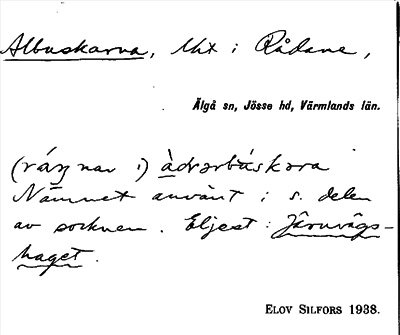 Albuskarna, Utx i Rådane,
Älgå sn, Jösse hd, Värmlands län.
i) àdvərbúskəra
Namnet använt i s. delen
av socknen. Eljest: Järnvägs-
haget.
ELOV SILFORS 1938.